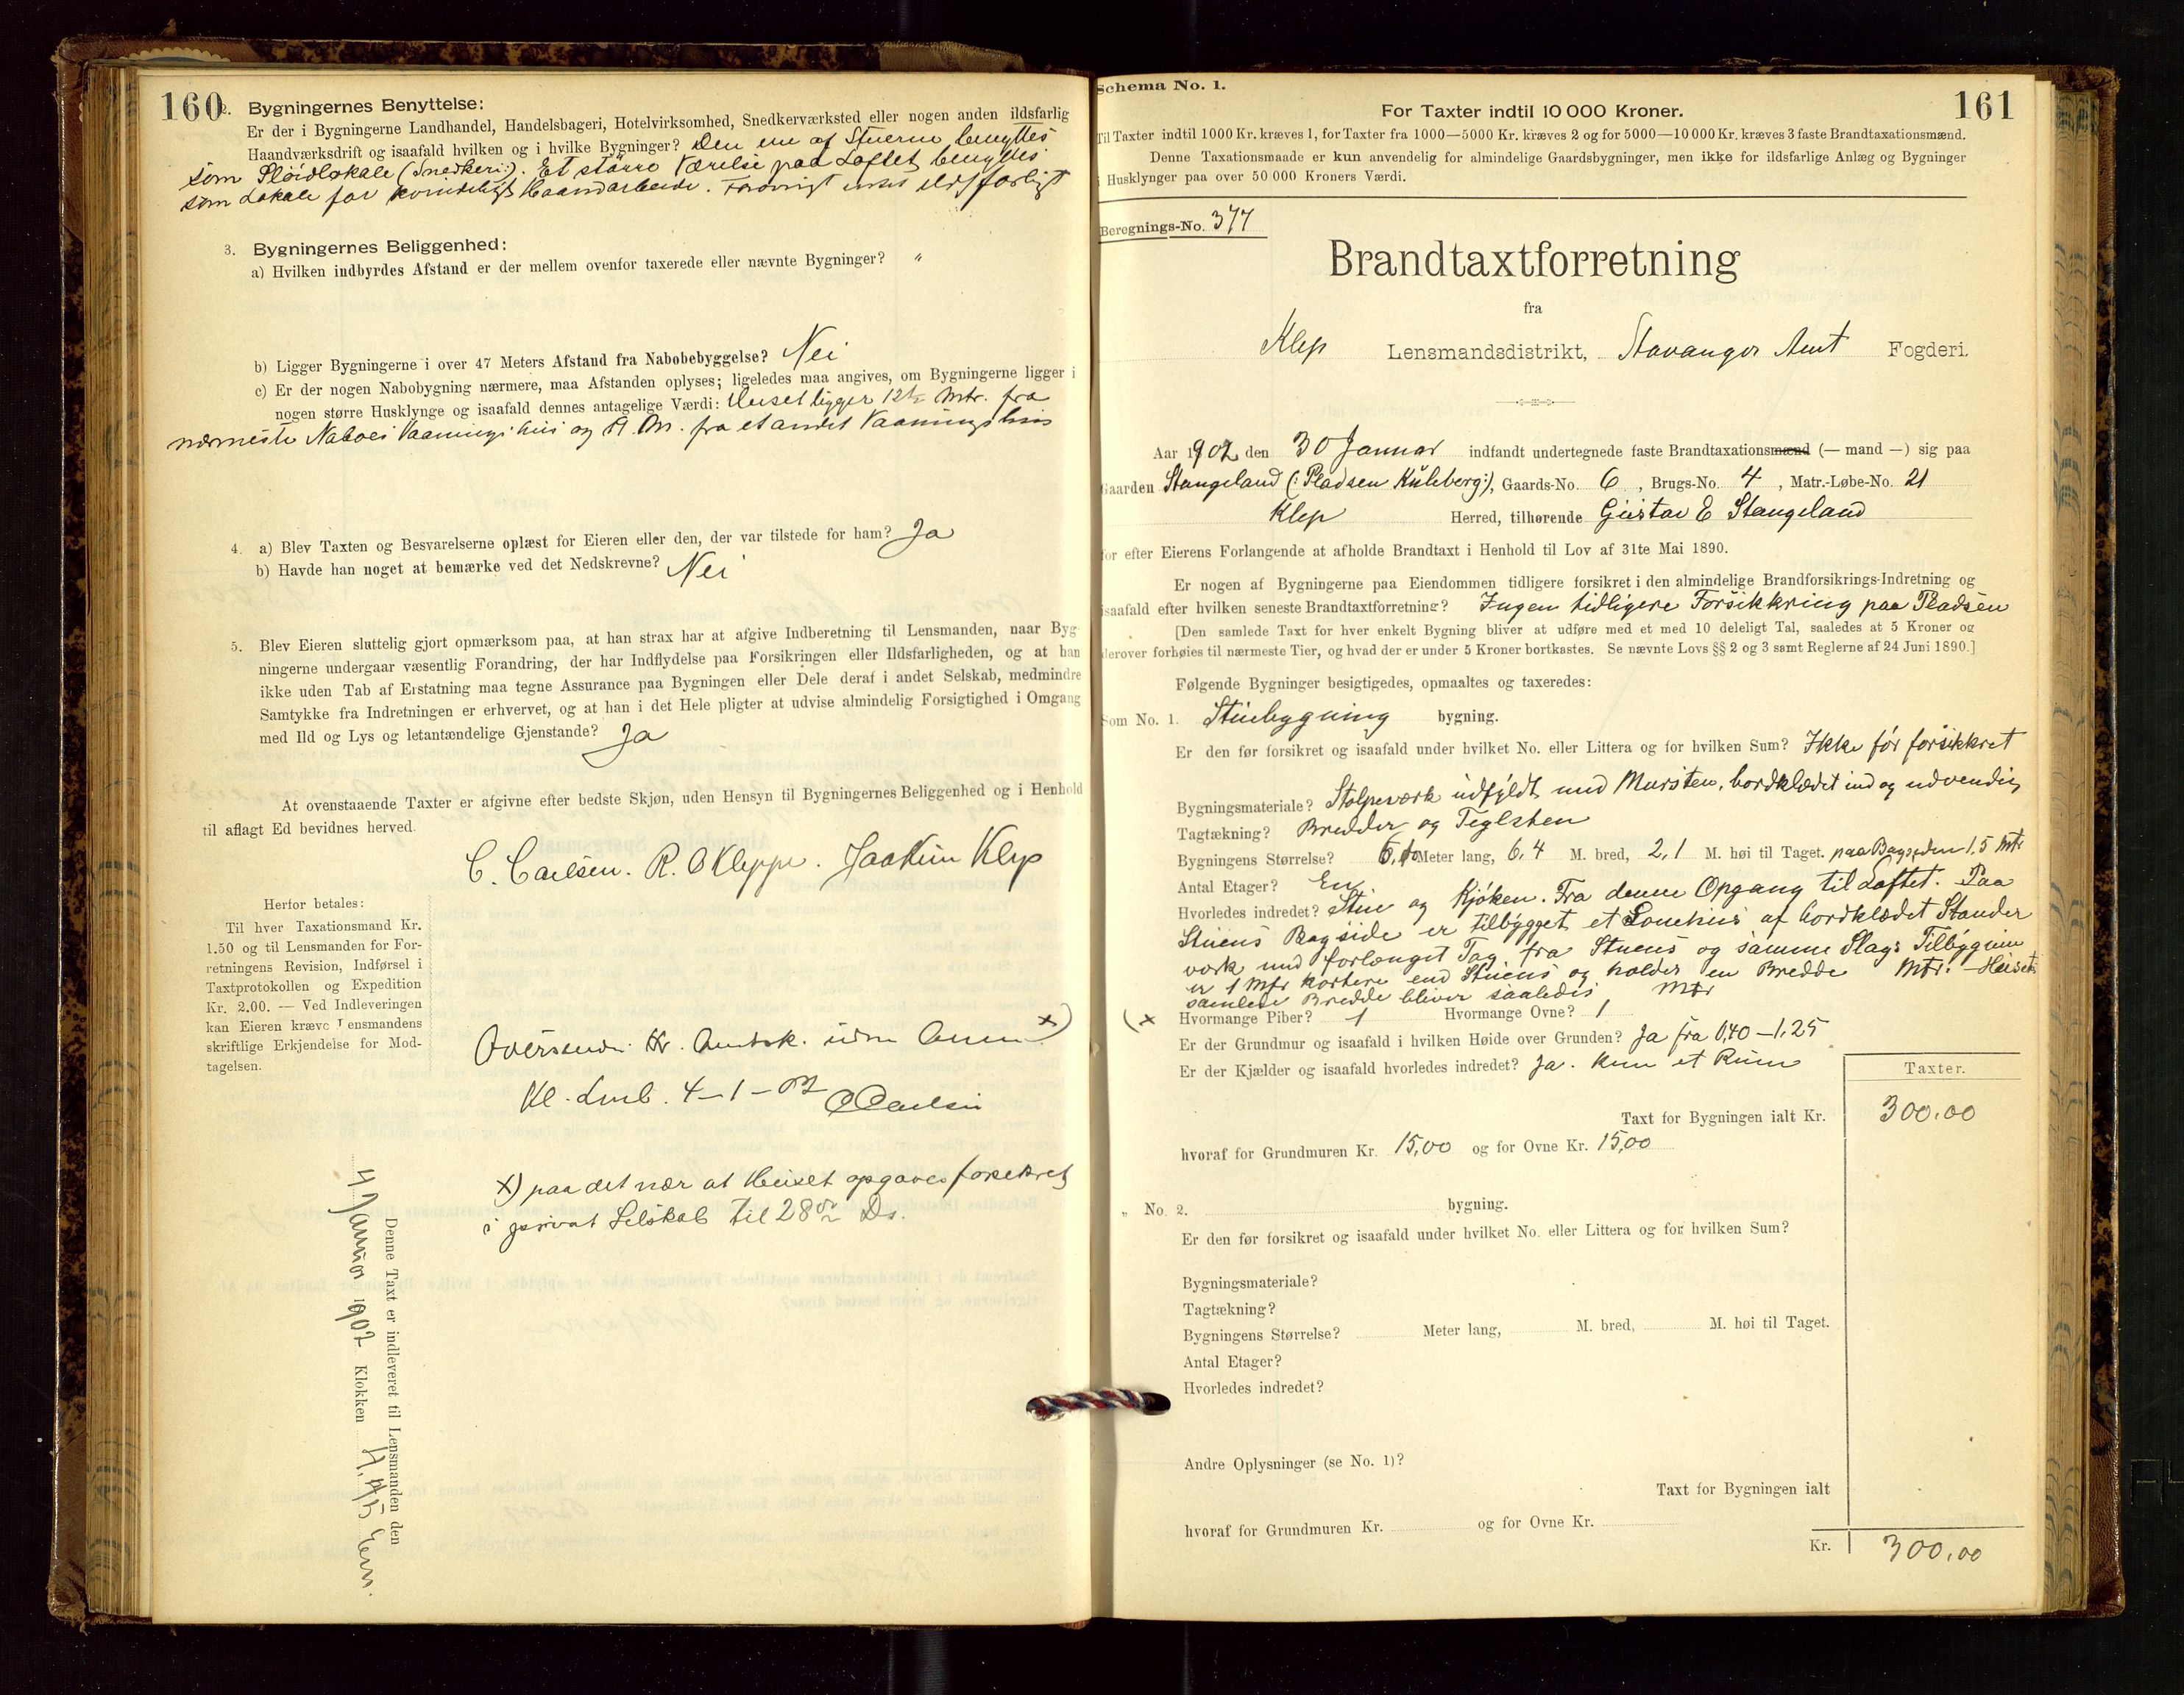 160
2. Bygningernes Benyttelse:
Er der i Bygningerne Landhandel, Handelsbageri, Hotelvirksomhed, Snedkerværksted eller nogen anden ildsfarlig
Haandværksdrift og isaafald hvilken og i hvilke Bygninger? Den ene af Stuerne benyttes
som Sløidlokale (Snedkeri:). Et større Værelse paa Loftet benyttes
som Lokale for kvindeligt Haandarbeide. Forøvrigt intet ildsfarligt
3. Bygningernes Beliggenhed:
a) Hvilken indbyrdes Afstand er der mellem ovenfor taxerede eller nævnte Bygninger? "
b) Ligger Bygningerne i over 47 Meters Afstand fra Nabobebyggelse? Nei
c) Er der nogen Nabobygning nærmere, maa Afstanden oplyses; ligeledes maa angives, om Bygningerne ligger i
nogen større Husklynge og isaafald dennes antagelige Værdi: Huset ligger 12½ Mtr. fra
nærmeste Naboes Vaaningshus og M. fra et andet Vaaningshus
4. a) Blev Taxten og Besvarelserne oplæst for Eieren eller den, der var tilstede for ham? Ja
b) Havde han noget at bemærke ved det Nedskrevne? Nei
5. Blev Eieren sluttelig gjort opmærksom paa, at han strax har at afgive Indberetning til Lensmanden, naar Byg
ningerne undergaar væsentlig Forandring, der har Indflydelse paa Forsikringen eller Ildsfarligheden, og at han
ikke uden Tab af Erstatning maa tegne Assurance paa Bygningen eller Dele deraf i andet Selskab, medmindre
Samtykke fra Indretningen er erhvervet, og at han i det Hele pligter at udvise almindelig Forsigtighed i Omgang
med Ild og Lys og letantændelige Gjenstande? Ja
At ovenstaaende Taxter er afgivne efter bedste Skjøn, uden Hensyn til Bygningernes Beliggenhed og i Henhold
til aflagt Ed bevidnes herved.
C. Carlsen. R. O Kleppe. Joakim Klep
Herfor betales:
Til hver Taxationsmand Kr.
1.50 og til Lensmanden for For-
retningens Revision, Indførsel i
Taxtprotokollen og Expedition
Kr. 2.00. — Ved Indleveringen
kan Eieren kræve Lensmandens
skriftlige Erkjendelse for Mod-
tagelsen.
Oversendes Hr. Amtsk. uden Anm x)
Kl. Lmb. 4-1-02 C Carlsen
x) paa det nær at Huset opgaves forsikret
i privat Selskab til 28
Denne Taxt er indleveret til Lensmanden den
4 Januar 1902 Klokken 4,45 Em.
161
Schema No. 1.
For Taxter indtil 10 000 Kroner.
Til Taxter indtil 1000 Kr. kræves 1, for Taxter fra 1000—5000 Kr. kræves 2 og for 5000—10 000 Kr. kræves 3 faste Brandtaxationsmænd.
Denne Taxationsmaade er kun anvendelig for almindelige Gaardsbygninger, men ikke for ildsfarlige Anlæg og Bygninger
i Husklynger paa over 50 000 Kroners Værdi.
Beregnings-No. 377
Brandtaxtforretning
fra
Klep Lensmandsdistrikt, Stavanger Amt Fogderi.
Aar 1902 den 30 Januar indfandt undertegnede faste Brandtaxationsmænd (— mand —) sig paa
Gaarden Stangeland (: Pladsen Kuleberg:), Gaards-No. 6, Brugs-No. 4, Matr.-Løbe-No. 21
Klep Herred, tilhørende Gustav E Stangeland
for efter Eierens Forlangende at afholde Brandtaxt i Henhold til Lov af 31te Mai 1890.
Er nogen af Bygningerne paa Eiendommen tidligere forsikret i den almindelige Brandforsikrings-Indretning og
isaafald efter hvilken seneste Brandtaxtforretning? Ingen tidligere Forsikkring paa Pladsen
[Den samlede Taxt for hver enkelt Bygning bliver at udføre med et med 10 deleligt Tal, saaledes at 5 Kroner og
derover forhøies til nærmeste Tier, og hvad der er under 5 Kroner bortkastes. Se nævnte Lovs §§ 2 og 3 samt Reglerne af 24 Juni 1890.]
Følgende Bygninger besigtigedes, opmaaltes og taxeredes:
Som No. 1. Stuebygning bygning.
Er den før forsikret og isaafald under hvilket No. eller Littera og for hvilken Sum? Ikke før forsikkret
Bygningsmateriale? Stolpeværk udfyldt med Mursten, bordklædet ind og udvendig
Tagtækning? Bredder og Teglsten
Bygningens Størrelse? Meter lang, 6,4 M. bred, 2,1 M. høi til Taget. paa Bagsiden 1,5 Mtr
Antal Etager? En
Hvorledes indredet? Stue og Kjøken. Fra denne Opgang til Loftet. Paa
Stuens Bagside er tilbygget et Lonehus af bordklædet Stander
værk med forlænget Tag fra Stuens og samme Slags Tilbygning
er 1 Mtr kortere end Stuens og holder en Bredde Mtr. - Husets
samlede Bredde bliver saaledes Mtr
(x Hvormange Piber? 1 Hvormange Ovne? 1
Er der Grundmur og isaafald i hvilken Høide over Grunden? Ja fra 0,40 - 1,25
Er der Kjælder og isaafald hvorledes indredet? Ja. kun et Rum
Taxter.
Taxt for Bygningen ialt Kr. 300,00
hvoraf for Grundmuren Kr. 15,00 og for Ovne Kr. 15,00
„ No. 2. bygning.
Er den før forsikret og isaafald under hvilket No. eller Littera og for hvilken Sum?
Bygningsmateriale?
Tagtækning?
Bygningens Størrelse? Meter lang, M. bred, M. høi til Taget.
Antal Etager?
Hvorledes indredet?
Andre Oplysninger (se No. 1)?
Taxt for Bygningen ialt
hvoraf for Grundmuren Kr. og for Ovne Kr.
Kr. 300,00